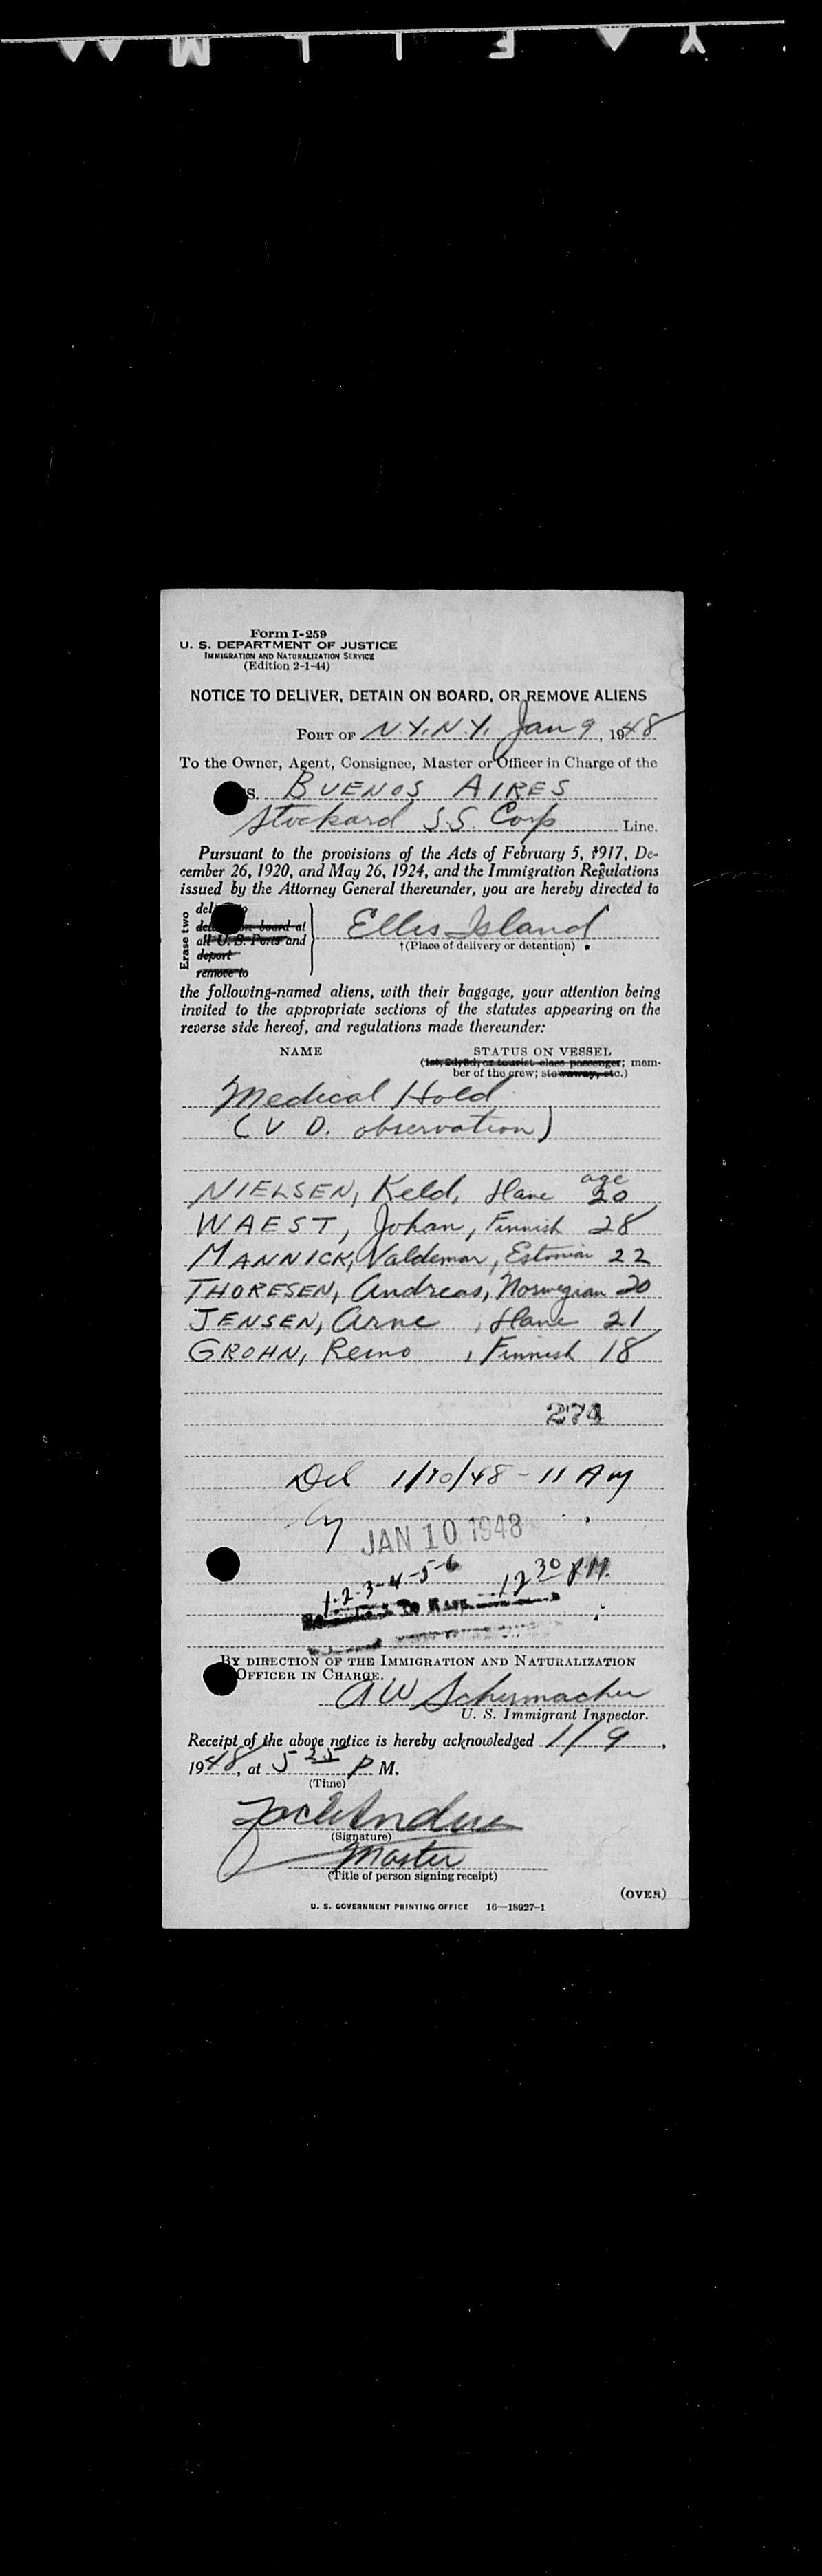 Form I-259
U. S. DEPARTMENT OF JUSTICE
IMMIGRATION AND NATURALIZATION SERVICE
(Edition 2-1-44)
NOTICE TO DELIVER, DETAIN ON BOARD, OR REMOVE ALIENS
PORT OF N.Y. N.Y. Jan 9, 1948
To the Owner, Agent, Consignee, Master or Officer in Charge of the
S. BUENOS AIRES
Stockard S.S. Corp Line.
Pursuant to the provisions of the Acts of February 5, 1917, De-
cember 26, 1920, and May 26, 1924, and the Immigration Regulations
issued by the Attorney General thereunder, you are hereby directed to
Erase two
on board at
all U. S. Ports and
deport
remove to
Ellis Island
†(Place of delivery or detention)
the following-named aliens, with their baggage, your attention being
invited to the appropriate sections of the statutes appearing on the
reverse side hereof, and regulations made thereunder:
NAME STATUS ON VESSEL
(1st, 2d, 3d, or tourist class passenger; mem-
ber of the crew; stowaway, etc.)
Medical Hold
(V D. observation)
age
NIELSEN, Keld, Dane 20
WAEST, Johan, Finnish 28
MANNICK, Valdemar, Estonian 22
THORESEN, Andreas, Norwegian 20
JENSEN, Arne, Dane 21
GROHN, Reino, Finnish 18
Del 1/10/48 - 11 AM
JAN 10 1948
1-2-3-4-5-6 12 30 P.M.
BY DIRECTION OF THE IMMIGRATION AND NATURALIZATION
OFFICER IN CHARGE.
A W Schermacher
U. S. Immigrant Inspector.
Receipt of the above notice is hereby acknowledged 1/9,
1948, at 5 25 P M.
(Time)
(Signature)
Master
(Title of person signing receipt)
(OVER)
U. S. GOVERNMENT PRINTING OFFICE 16—18927-1